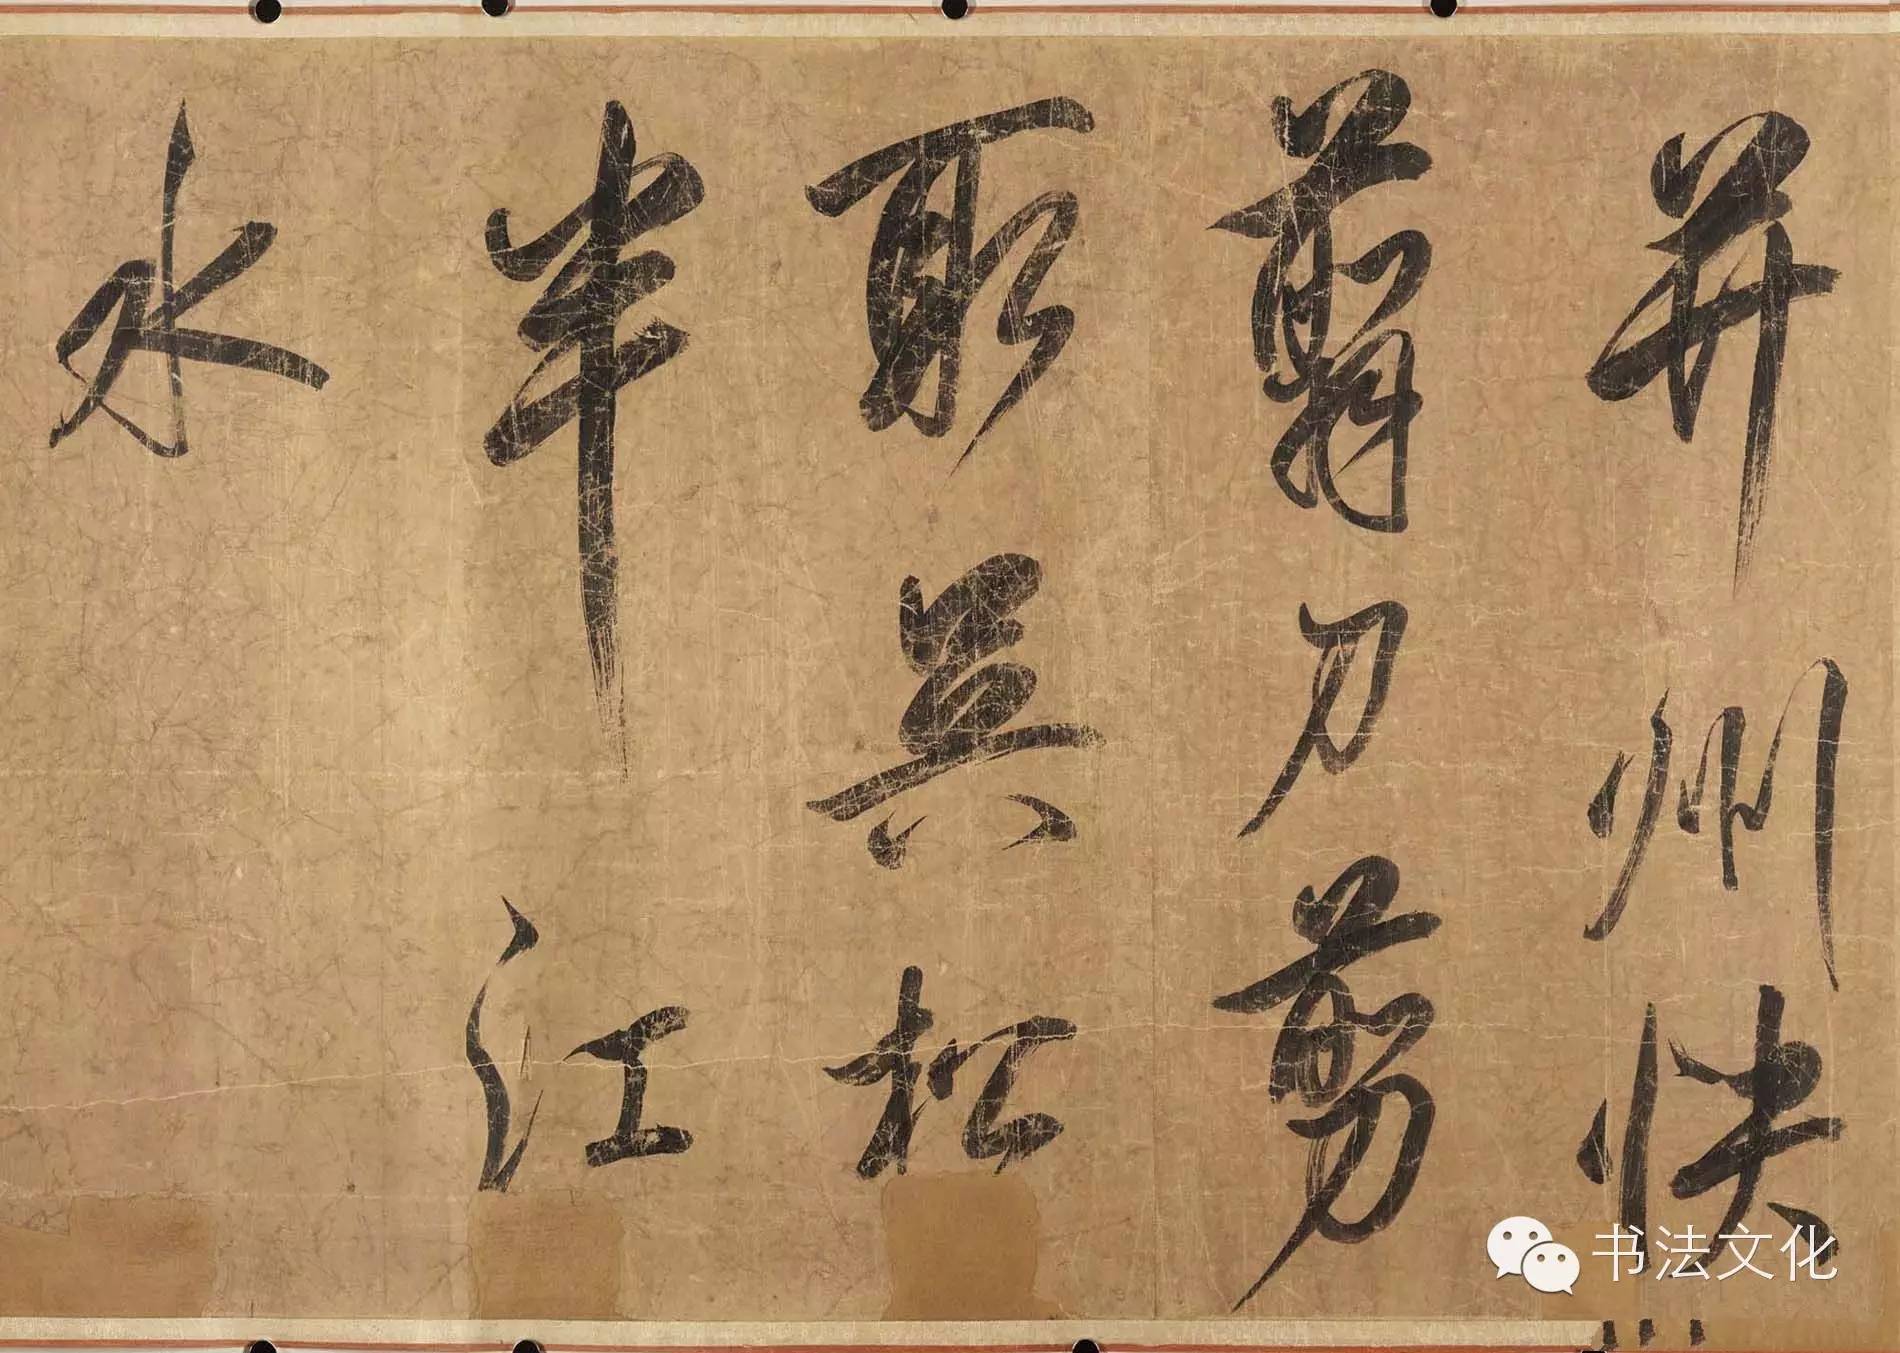 并州快
翦刀剪
取吴松
半江
水
书法文化